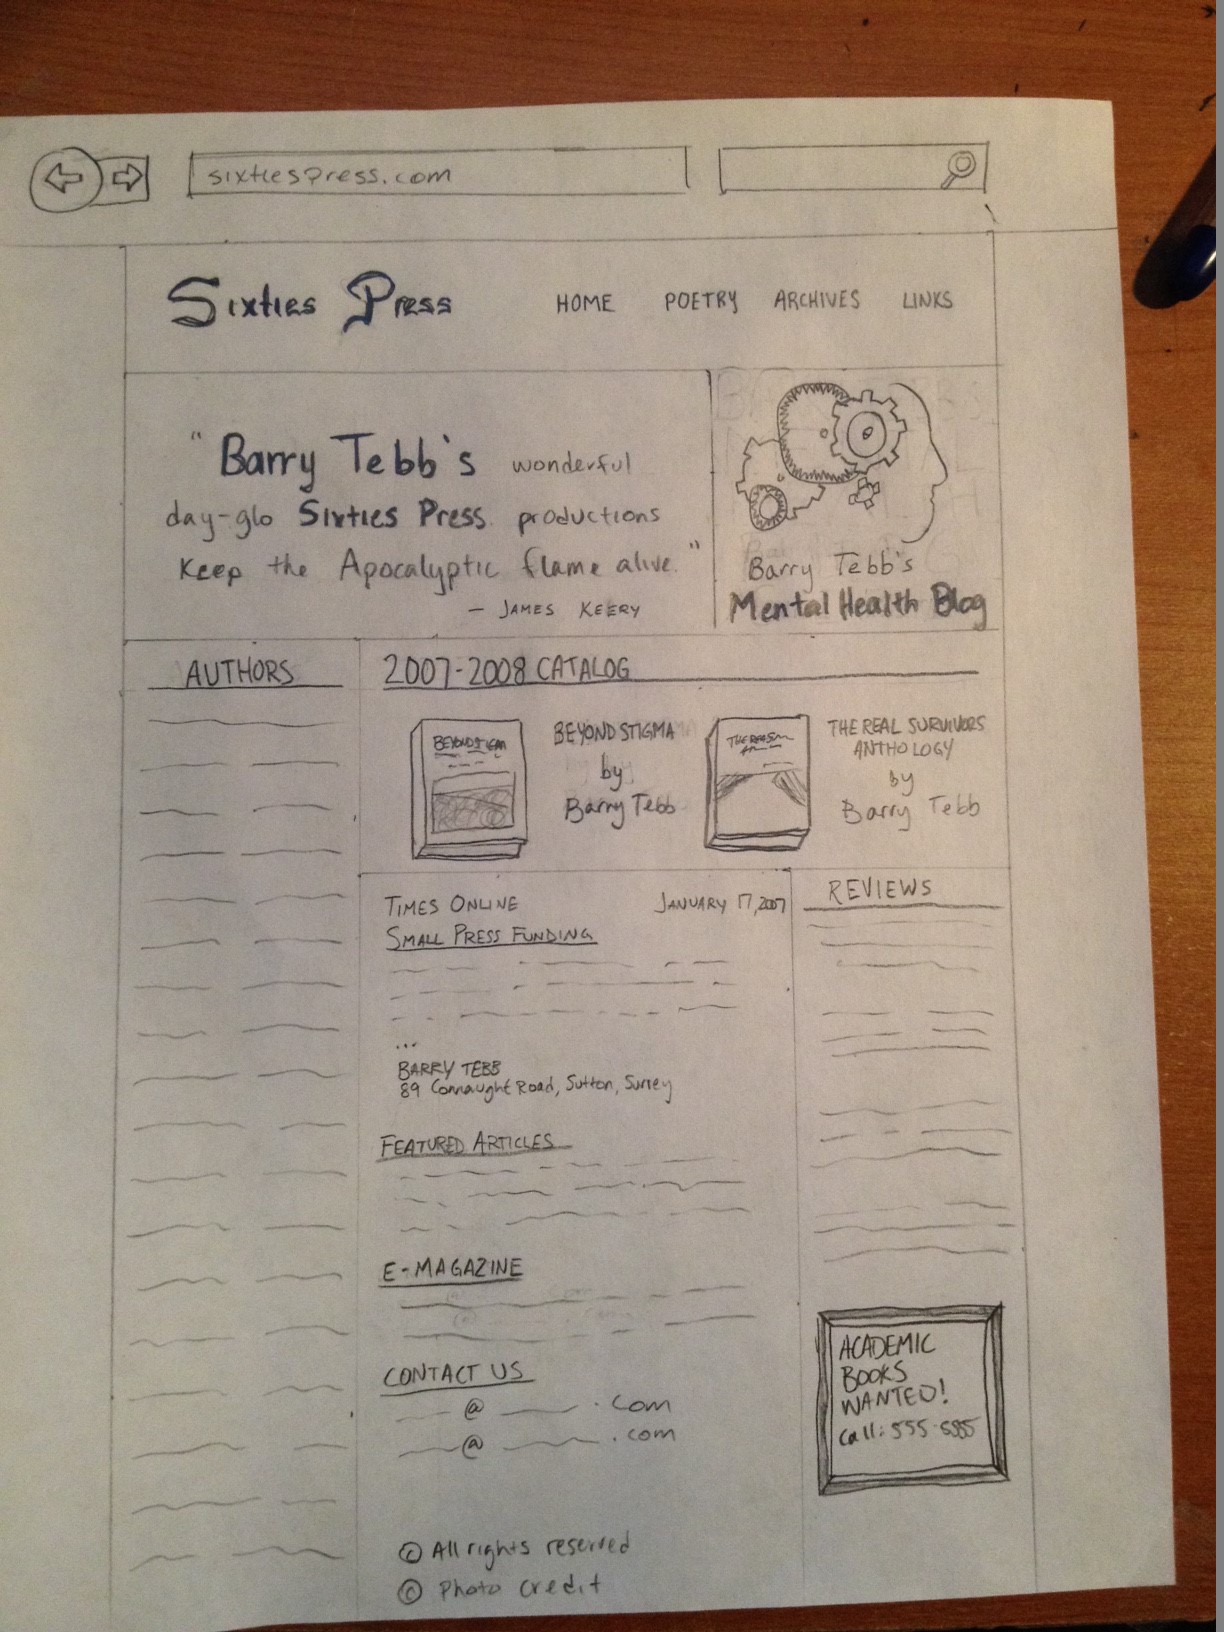 sixtiespress.com
Sixties Press
HOME POETRY ARCHIVES LINKS
"Barry Tebb's wonderful
day-glo Sixties Press productions
Keep the Apocalyptic flame alive."
- JAMES KEERY
Barry Tebb's
Mental Health Blog
AUTHORS
2007-2008 CATALOG
BEYOND STIGMA
BEYOND STIGMA
by
Barry Tebb
THE REAL SURVIVORS
ANTHOLOGY
by
Barry Tebb
TIMES ONLINE JANUARY 17, 2007
SMALL PRESS FUNDING
...
BARRY TEBB
89 Connaught Road, Sutton, Surrey
FEATURED ARTICLES
E-MAGAZINE
CONTACT US
@ .com
@ .com
© All rights reserved
© Photo credit
REVIEWS
ACADEMIC
BOOKS
WANTED!
call: 555-